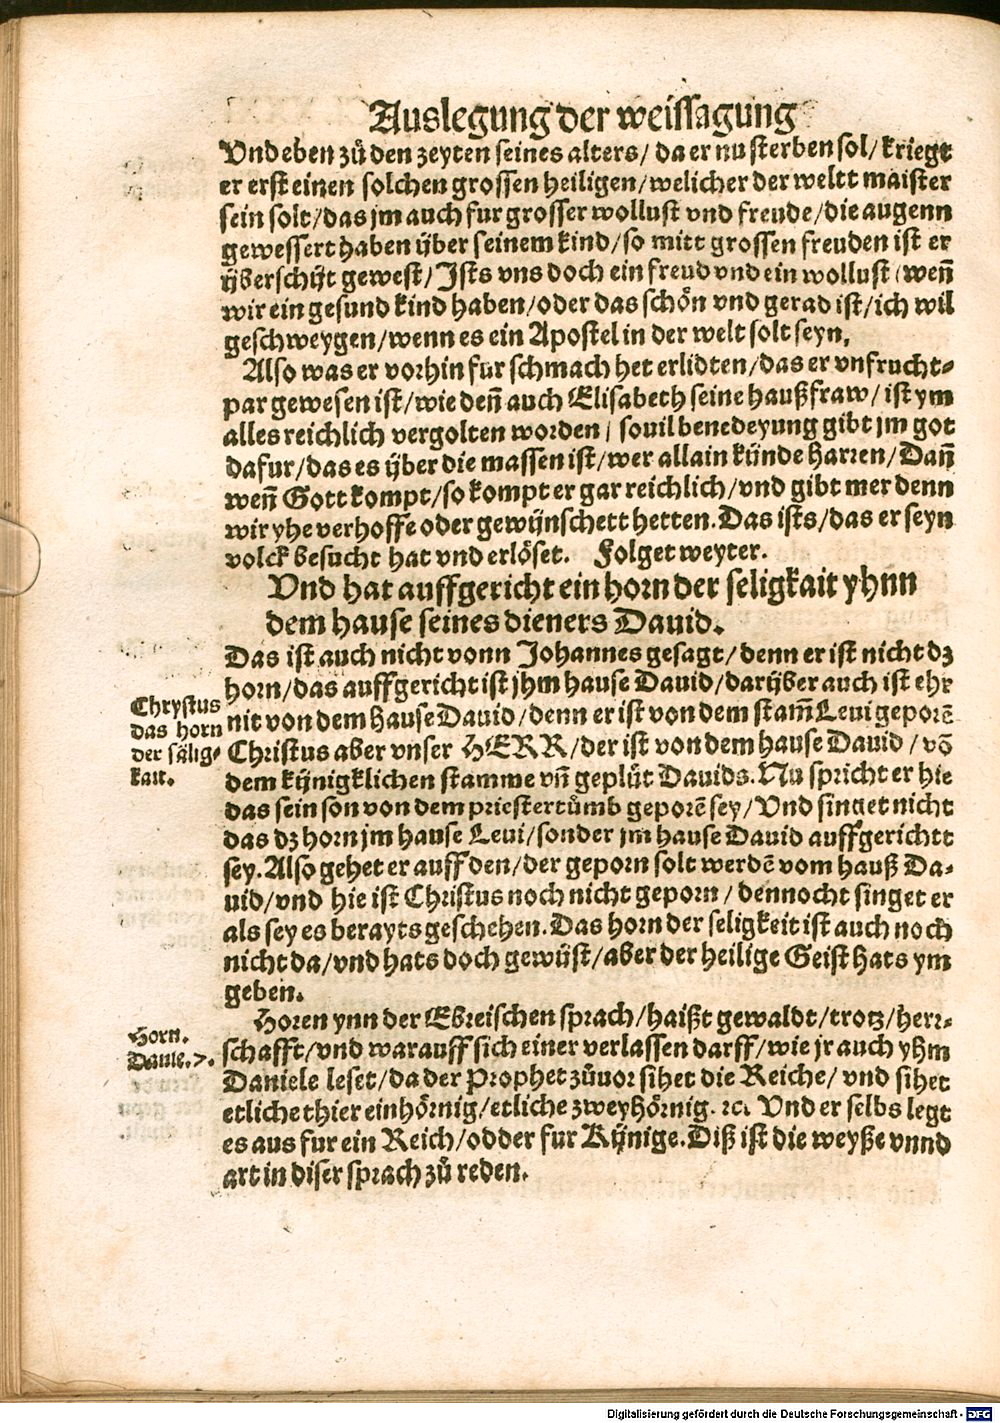 Auslegung der weissagung
Vnd eben zů den zeyten seines alters/ da er nu sterben sol/ kriegt
er erst einen solchen grossen heiligen/ welicher der weltt maister
sein solt/ das jm auch fur grosser wollust vnd freude/ die augenn
gewessert haben ÿber seinem kind/ so mitt grossen freuden ist er
ÿberschÿt gewest/ Ists vns doch ein freud vnd ein wollust/ weñ
wir ein gesund kind haben/ oder das schön vnd gerad ist/ ich wil
geschweygen/ wenn es ein Apostel in der welt solt seyn.
Also was er vorhin fur schmach het erlidten/ das er vnfrucht-
par gewesen ist/ wie deñ auch Elisabeth seine haußfraw/ ist ym
alles reichlich vergolten worden/ souil benedeyung gibt jm got
dafur/ das es ÿber die massen ist/ wer allain künde harren/ Dañ
weñ Gott kompt/ so kompt er gar reichlich/ vnd gibt mer denn
wir yhe verhoffe oder gewÿnschett hetten. Das ists/ das er seyn
volck besucht hat vnd erlöset. Folget weyter.
Vnd hat auffgericht ein horn der seligkait yhnn
dem hause seines dieners Dauid.
Das ist auch nicht vonn Johannes gesagt/ denn er ist nicht dz
horn/ das auffgericht ist jhm hause Dauid/ darÿber auch ist ehr
nit von dem hause Dauid/ denn er ist von dem stam̃ Leui geporẽ
Chrystus
das horn
der sälig-
kait.
Christus aber vnser HERR/ der ist von dem hause Dauid/ võ
dem kÿnigklichen stamme vñ geplüt Dauids. Nu spricht er hie
das sein son von dem priestertůmb geporẽ sey/ Vnd singet nicht
das dz horn jm hause Leui/ sonder jm hause Dauid auffgerichtt
sey. Also gehet er auff den/ der geporn solt werdẽ vom hauß Da-
uid/ vnd hie ist Christus noch nicht geporn/ dennocht singet er
als sey es berayts geschehen. Das horn der seligkeit ist auch noch
nicht da/ vnd hats doch gewüst/ aber der heilige Geist hats ym
geben.
Horen ynn der Ebreischen sprach/ haißt gewaldt/ trotz/ herr-
schafft/ vnd warauff sich einer verlassen darff/ wie jr auch yhm
Horn.
Danie. 7.
Daniele leset/ da der Prophet zůuor sihet die Reiche/ vnd sihet
etliche thier einhörnig/ etliche zweyhörnig. ꝛc. Vnd er selbs legt
es aus fur ein Reich/ odder fur Kÿnige. Diß ist die weyße vnnd
art in diser sprach zů reden.
Digitalisierung gefördert durch die Deutsche Forschungsgemeinschaft - DFG